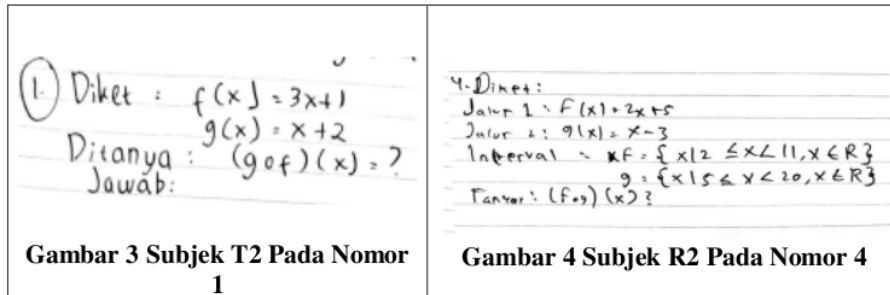 1. Diket : f(x) = 3x+1
g(x) = x+2
Ditanya : (gof)(x) = ?
Jawab:
Gambar 3 Subjek T2 Pada Nomor
1
4. Diket:
Jalur 1 : f(x) = 2x+5
Jalur 2 : g(x) = x-3
Interval : f = {x|2 ≤ x < 11, x ∈ R}
g = {x|5 ≤ x < 20, x ∈ R}
(fog)(x)?
Gambar 4 Subjek R2 Pada Nomor 4